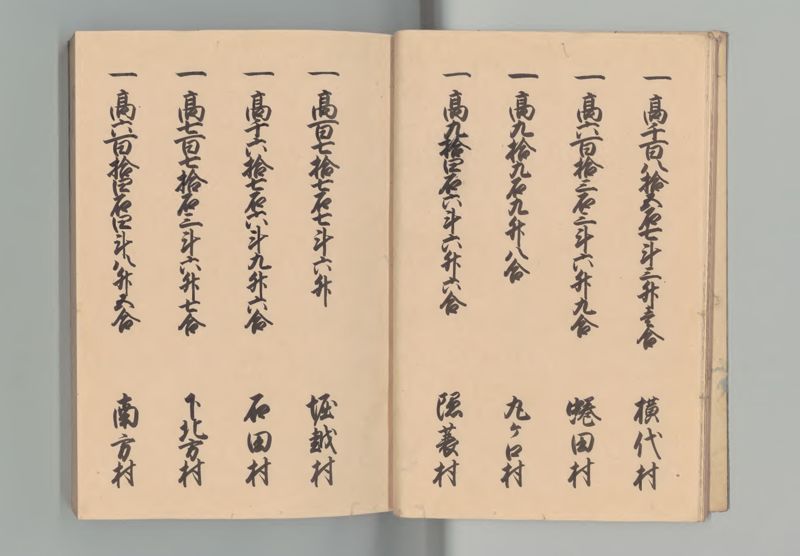 一高千百八拾五石七斗三升壱合 横代村
一高六百拾三石三斗六升九合 蜷田村
一高九拾九石九升八合 九ヶ口村
一高九拾四石六斗六升六合 隠蓑村
一高百七拾七石七斗六升 堀越村
一高千六拾七石六斗九升六合 石田村
一高七百七拾石三斗六升七合 下北方村
一高六百拾四石四斗八升五合 南方村